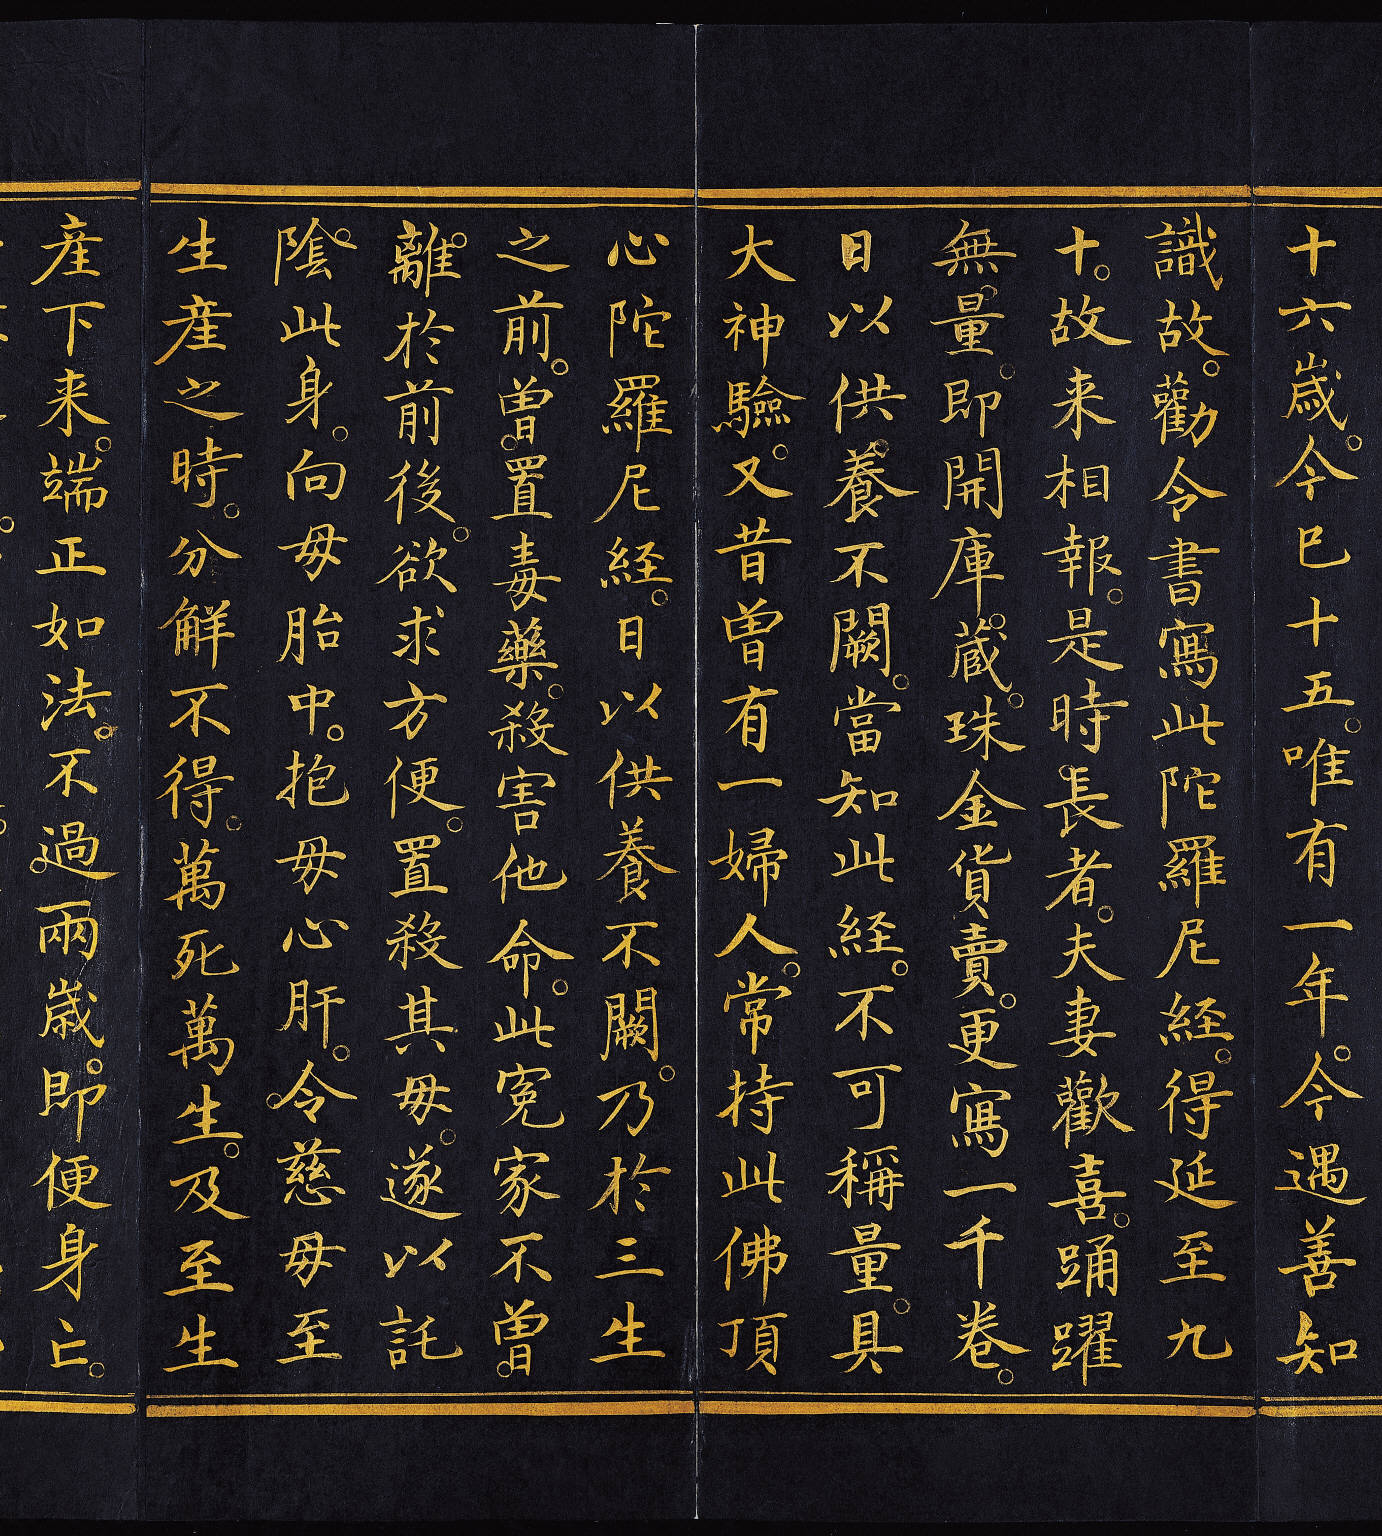 十六歳。今巳十五。唯有一年。今遇善知
識故。勸令書寫此陀羅尼経。得延至九
十。故来相報。是時長者。夫妻歡喜。踊躍
無量。即開庫。蔵。珠金貨賣。更寫一千卷。
日以供養不闕。當知此経。不可稱量。具
大神驗。又昔曽有一婦人。常持此佛頂
心陀羅尼経。日以供養不闕。乃於三生
之前。曽。置毒藥。殺害他命。此寃家不曽。
離。於前後。欲求方便。置殺其毋。遂以託
陰。此身。向毋胎中。抱毋心肝。令慈毋至
生産之時。分解不得。萬死萬生。及至生
産下来。端正如法。不過。兩歳。即便身亡。